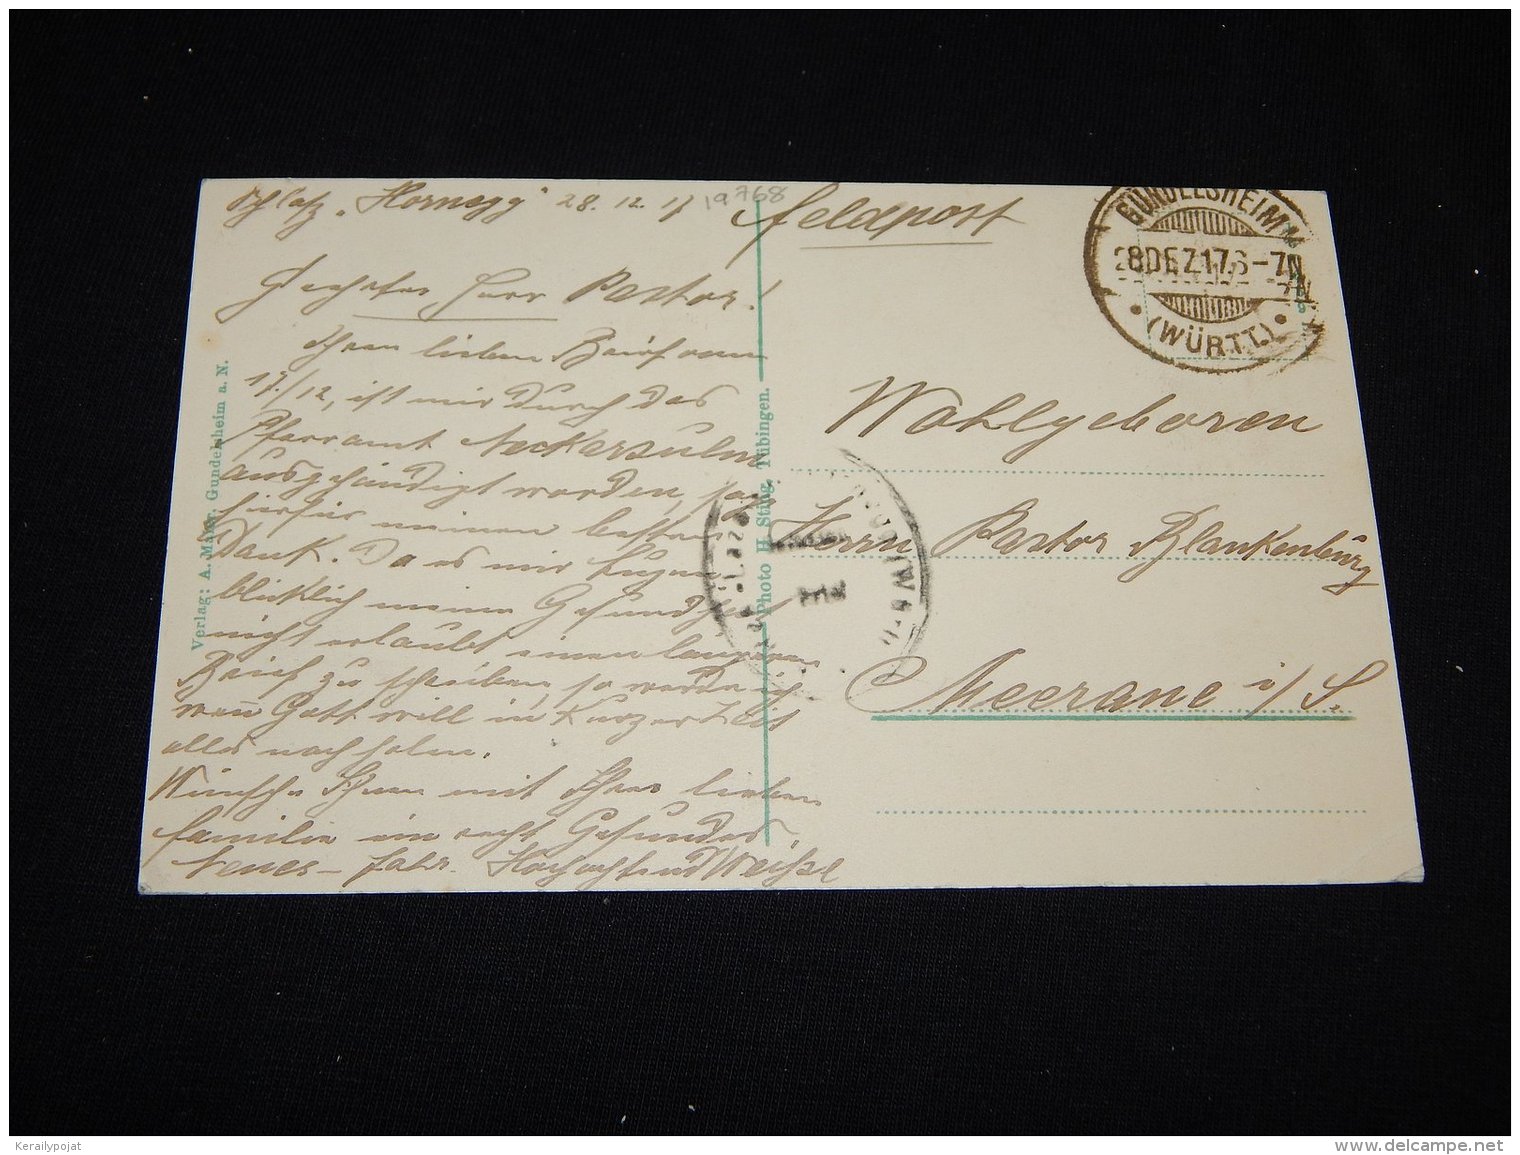 Schloß „Hornegg" 28. 12. 17
19768
Feldpost
Geehrter Herr Pastor!
Ihren lieben Brief vom
17./12, ist mir durch das
Pfarramt Neckarsulm
ausgehändigt worden, sage
hierfür meinen besten
Dank. Da es mir augen
blicklich meine Gesundheit
nicht erlaubt einen längeren
Brief zu schreiben, so werde ich
wen̄ Gott will in Kurzer Zeit
alles nachholen.
Wünsche Ihnen mit Ihrer lieben
Familie ein recht Gesundes
Neues-Jahr. Hochachtend Weißel
Verlag: A. Maier, Gundelsheim a. N.
Photo H. Sting, Tübingen.
GUNDELSHEIM
28 DEZ 17 6-7N
(WÜRTT.)
Wohlgeboren
Herrn Pastor Blankenburg
Meerane i/S.
Kerailypojat
http://www.delcampe.net